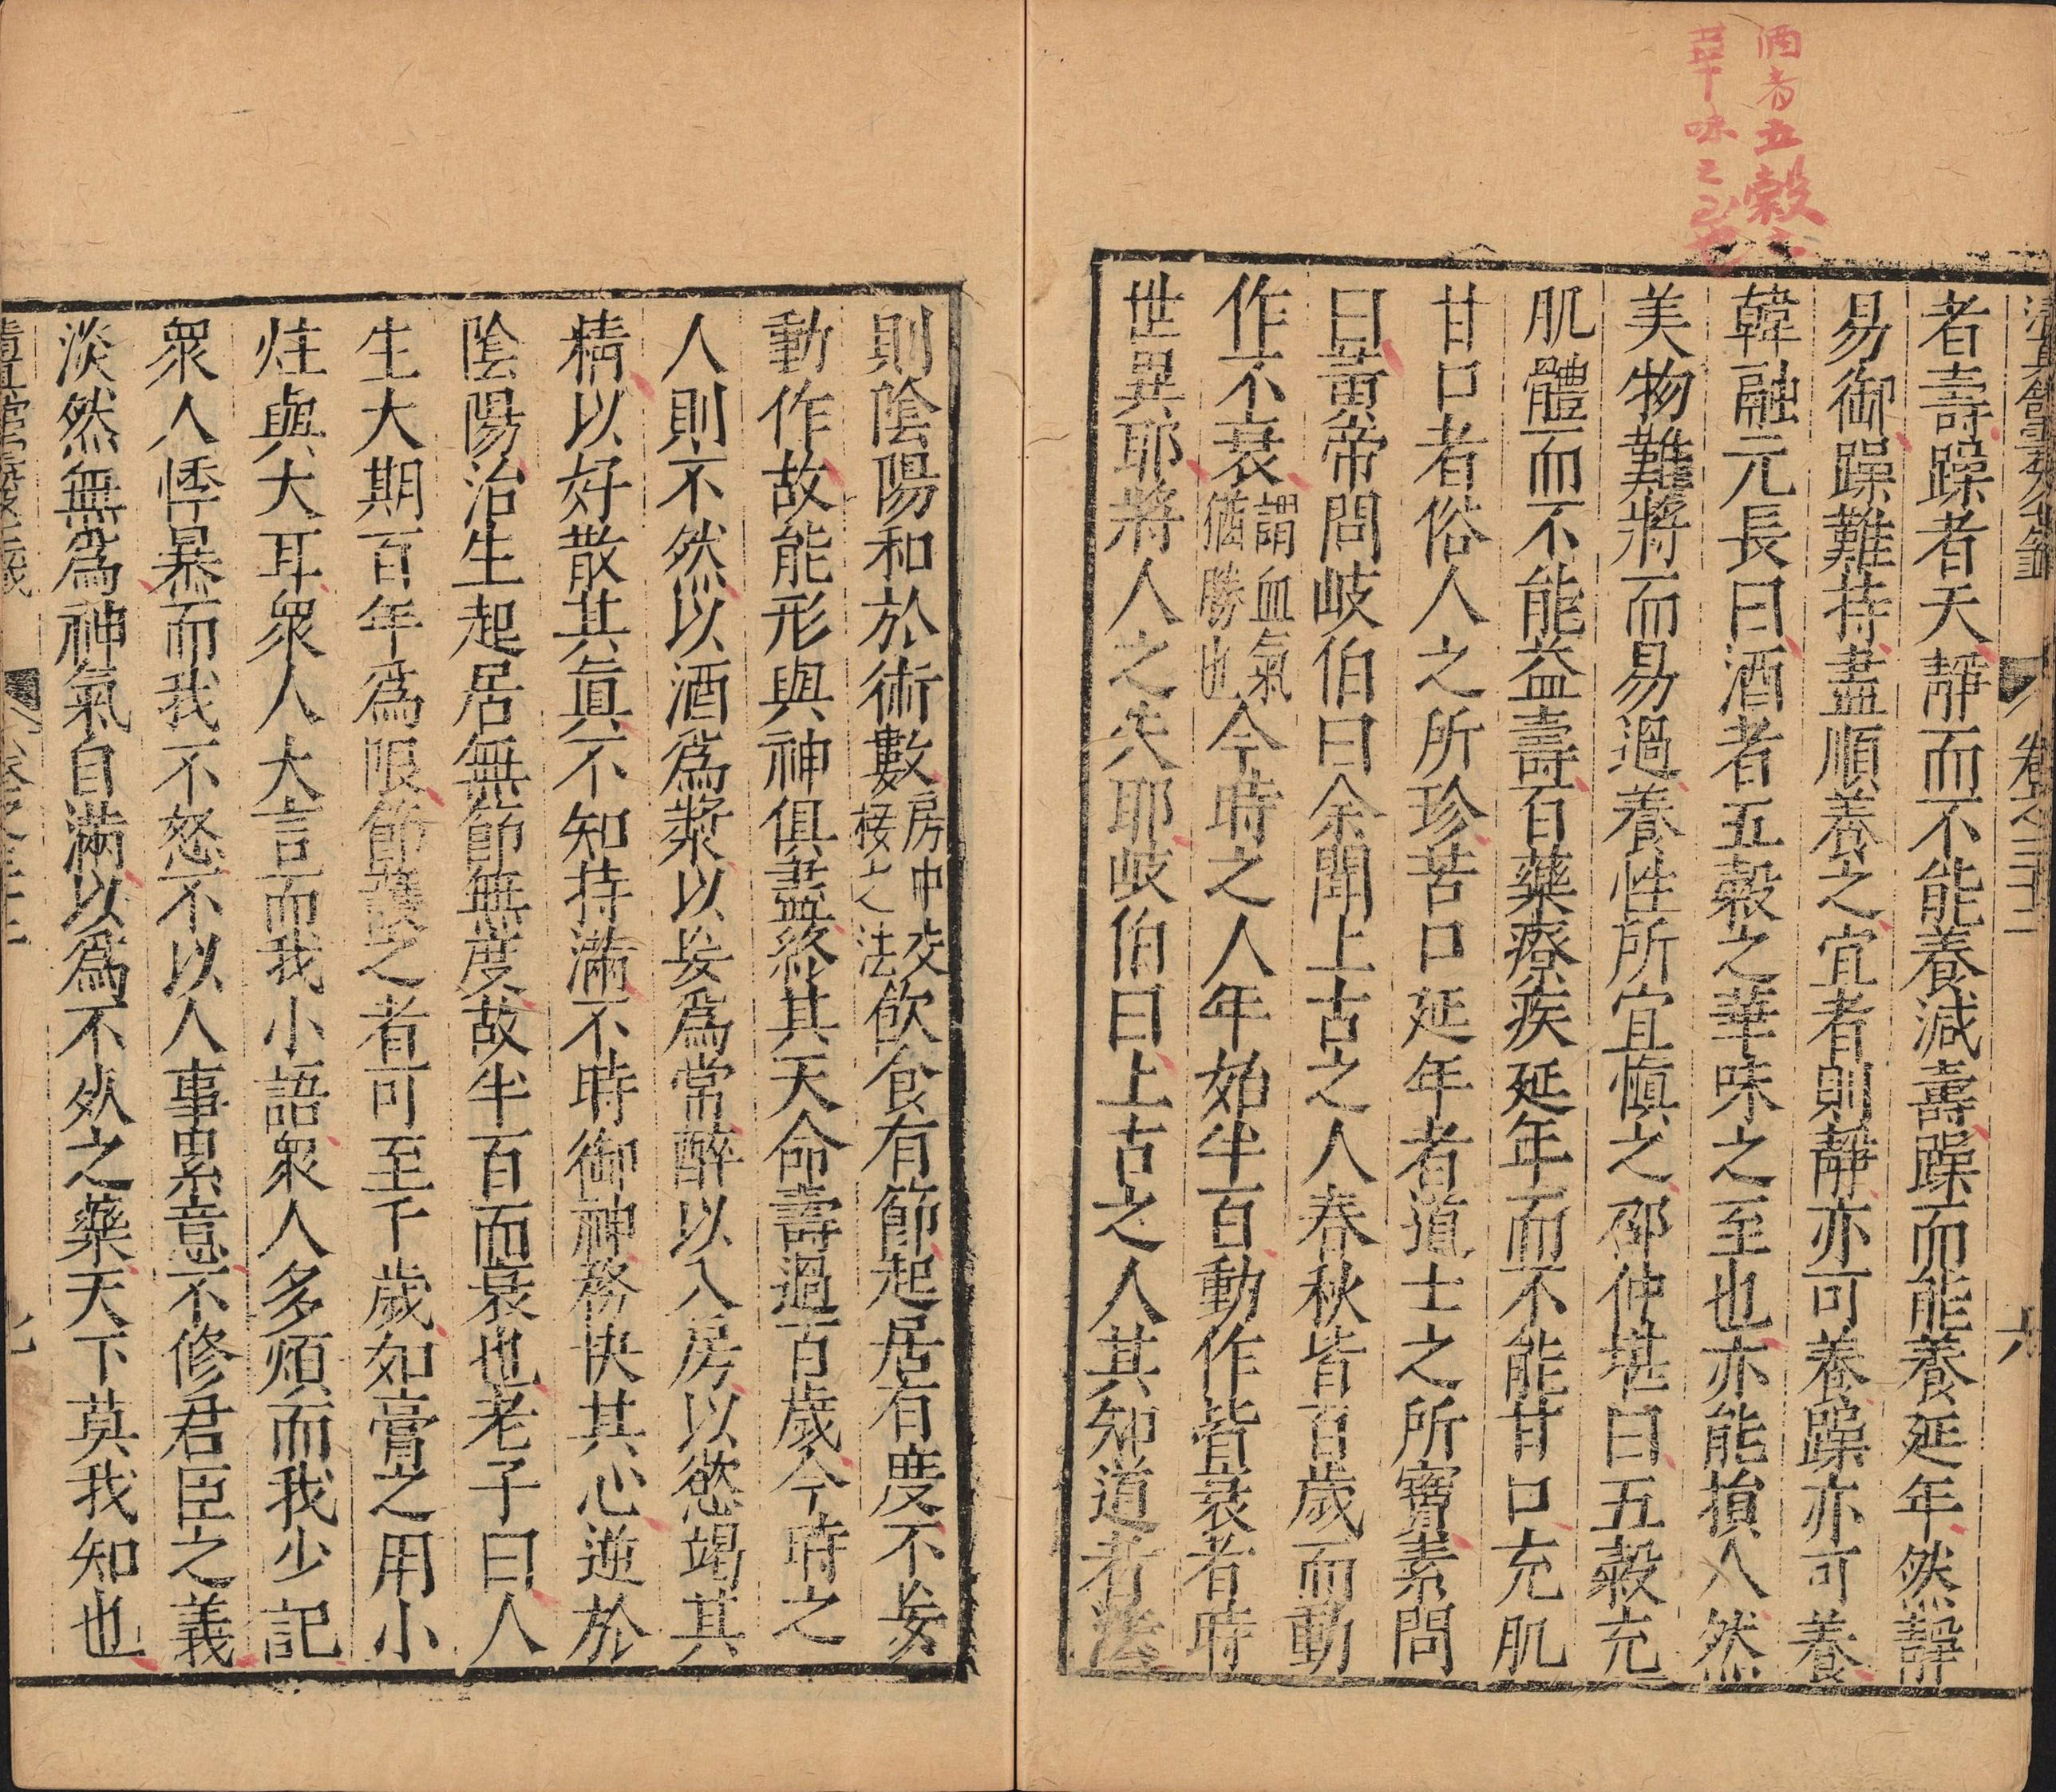 酒者五穀之
華味之至也
清真館雲笈七籤 卷之三十二 六
者壽躁者夭靜而不能養減壽躁而能養延年然靜
易御躁難持盡順養之宜者則靜亦可養躁亦可養
韓融元長曰酒者五穀之華味之至也亦能損人然
美物難將而易過養性所宜慎之邵仲堪曰五穀充
肌體而不能益壽百藥療疾延年而不能甘口充肌
甘口者俗人之所珍苦口延年者道士之所寶素問
曰黃帝問岐伯曰余聞上古之人春秋皆百歲而動
作不衰謂血氣猶勝也今時之人年始半百動作皆衰者時
世異耶將人之失耶岐伯曰上古之人其知道者法
則陰陽和於術數房中交接之法飲食有節起居有度不妄
動作故能形與神俱盡終其天命壽過百歲今時之
人則不然以酒爲漿以妄爲常醉以入房以慾竭其
精以好散其真不知持滿不時御神務快其心遊於
陰陽治生起居無節無度故半百而衰也老子曰人
生大期百年爲限節護之者可至千歲如膏之用小
炷與大耳衆人大言而我小語衆人多煩而我少記
衆人悸暴而我不怒不以人事累意不修君臣之義
淡然無爲神氣自滿以爲不死之藥天下莫我知也